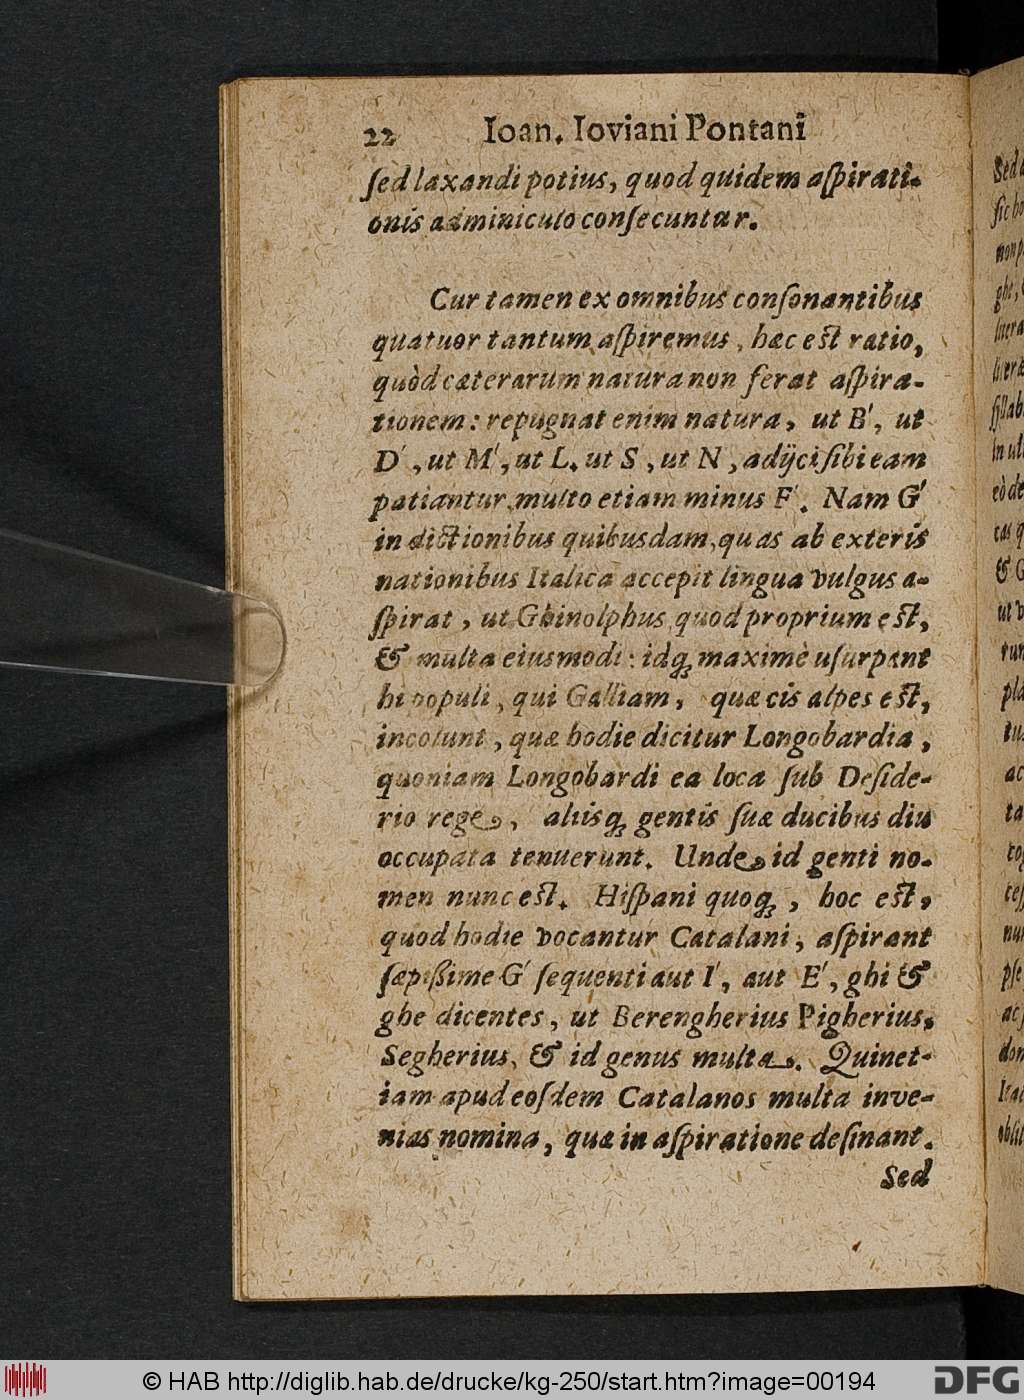 22 Ioan. Ioviani Pontani
sed laxandi potius, quod quidem aspirati-
onis adminiculo consecuntur.
Cur tamen ex omnibus consonantibus
quatuor tantum aspiremus, hæc est ratio,
quòd cæterarum natura non ferat aspira-
tionem: repugnat enim natura, ut B', ut
D', ut M', ut L, ut S, ut N, adijci sibi eam
patiantur, multo etiam minus F'. Nam G'
in dictionibus quibusdam, quas ab exteris
nationibus Italica accepit lingua vulgus a-
spirat, ut Ghinolphus quod proprium est,
& multa eiusmodi: idq́; maximè usurpant
hi populi, qui Galliam, quæ cis alpes est,
incolunt, quæ hodie dicitur Longobardia,
quoniam Longobardi ea loca sub Deside-
rio rege, aliisq́; gentis suæ ducibus diu
occupata tenuerunt. Unde id genti no-
men nunc est. Hispani quoq́;, hoc est,
quod hodie vocantur Catalani, aspirant
sæpißime G' sequenti aut I', aut E', ghi &
ghe dicentes, ut Berengherius Pigherius,
Segherius, & id genus multa. Quinet-
iam apud eosdem Catalanos multa inve-
nias nomina, quæ in aspiratione desinant.
Sed
© HAB http://diglib.hab.de/drucke/kg-250/start.htm?image=00194
DFG